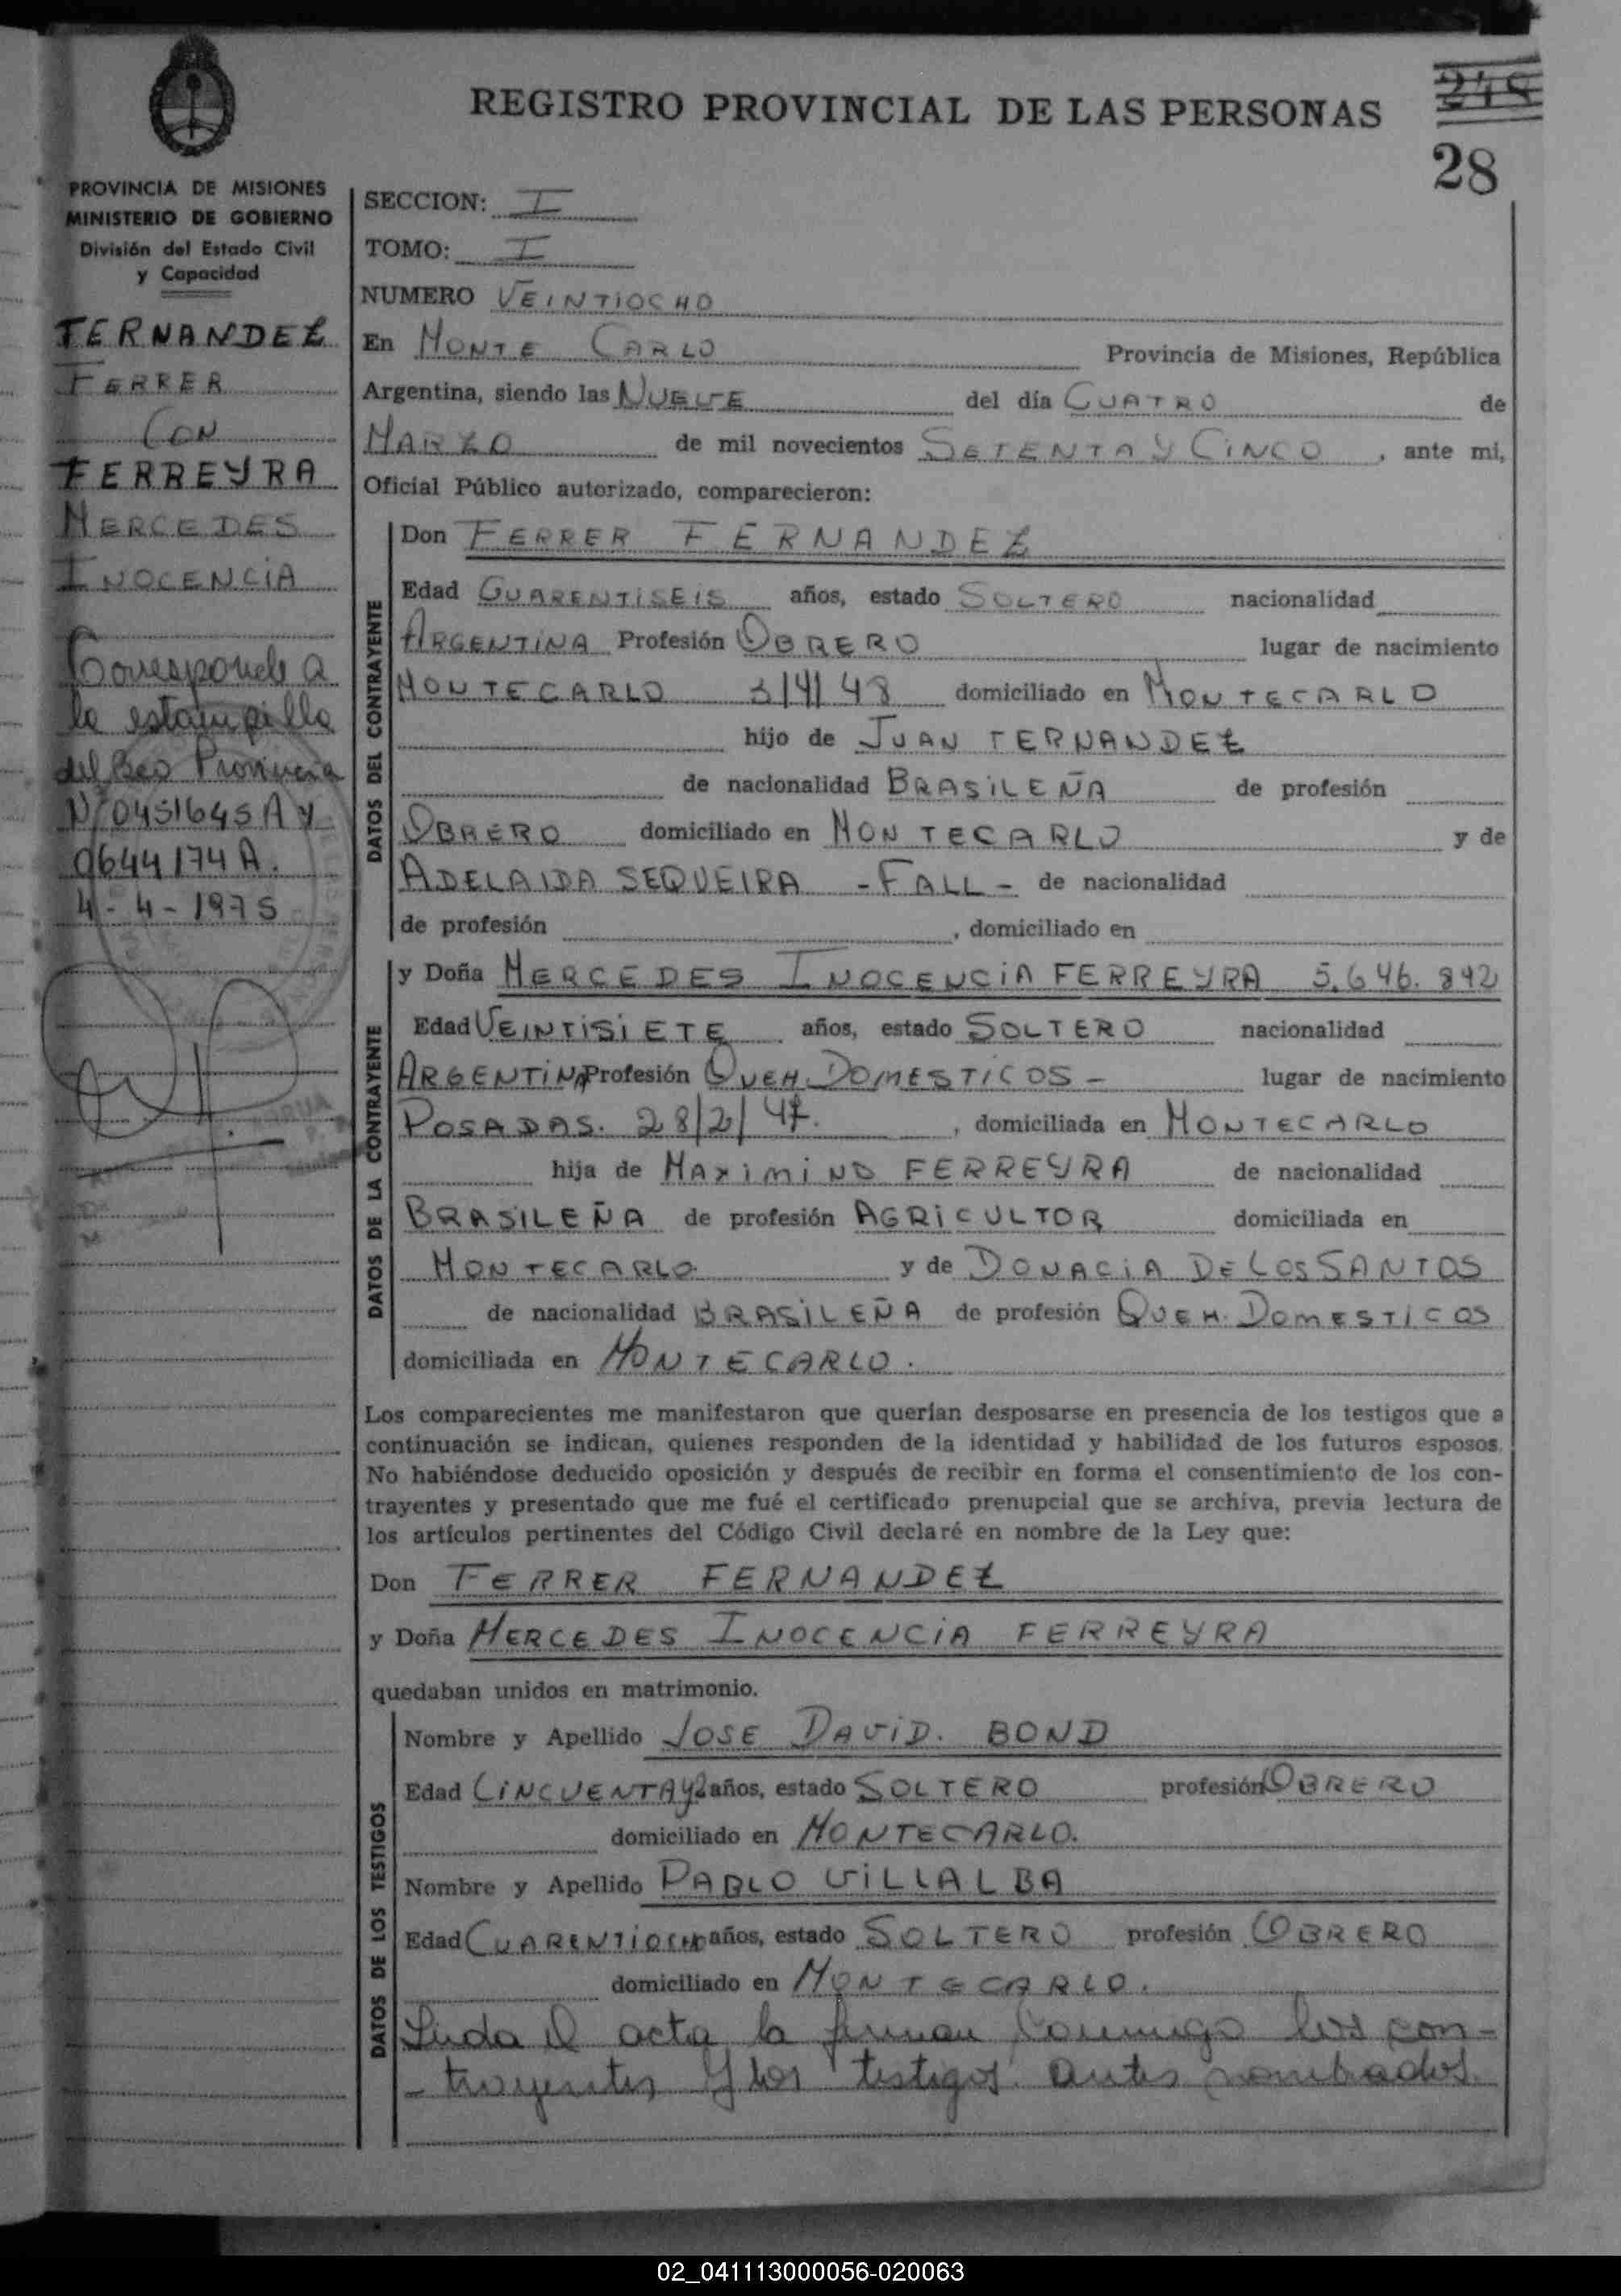 REGISTRO PROVINCIAL DE LAS PERSONAS
28
PROVINCIA DE MISIONES
MINISTERIO DE GOBIERNO
División del Estado Civil
y Capacidad
FERNANDEZ
FERRER
CON
FERREYRA
MERCEDES
INOCENCIA
Corresponde a
la estampilla
del Bco Provincia
Nº 0451645 A y
0644174 A.
4-4-1975
SECCION: I
TOMO: I
NUMERO VEINTIOCHO
En MONTE CARLO Provincia de Misiones, República
Argentina, siendo las NUEVE del día CUATRO de
MARZO de mil novecientos SETENTA Y CINCO, ante mi,
Oficial Público autorizado, comparecieron:
DATOS DEL CONTRAYENTE
Don FERRER FERNANDEZ
Edad CUARENTISEIS años, estado SOLTERO nacionalidad
ARGENTINA Profesión OBRERO lugar de nacimiento
MONTECARLO 3/4/48 domiciliado en MONTECARLO
hijo de JUAN FERNANDEZ
de nacionalidad BRASILEÑA de profesión
OBRERO domiciliado en MONTECARLO y de
ADELAIDA SEQUEIRA -FALL- de nacionalidad
de profesión , domiciliado en
DATOS DE LA CONTRAYENTE
y Doña MERCEDES INOCENCIA FERREYRA 5.646.842
Edad VEINTISIETE años, estado SOLTERO nacionalidad
ARGENTINA Profesión QUEH. DOMESTICOS - lugar de nacimiento
POSADAS. 28/2/47. , domiciliada en MONTECARLO
hija de MAXIMINO FERREYRA de nacionalidad
BRASILEÑA de profesión AGRICULTOR domiciliada en
MONTECARLO y de DONACIA DE LOS SANTOS
de nacionalidad BRASILEÑA de profesión QUEH. DOMESTICOS
domiciliada en MONTECARLO.
Los comparecientes me manifestaron que querían desposarse en presencia de los testigos que a
continuación se indican, quienes responden de la identidad y habilidad de los futuros esposos.
No habiéndose deducido oposición y después de recibir en forma el consentimiento de los con-
trayentes y presentado que me fué el certificado prenupcial que se archiva, previa lectura de
los artículos pertinentes del Código Civil declaré en nombre de la Ley que:
Don FERRER FERNANDEZ
y Doña MERCEDES INOCENCIA FERREYRA
quedaban unidos en matrimonio.
DATOS DE LOS TESTIGOS
Nombre y Apellido JOSE DAVID. BOND
Edad CINCUENTAY2 años, estado SOLTERO profesión OBRERO
domiciliado en MONTECARLO.
Nombre y Apellido PABLO VILLALBA
Edad CUARENTIOCHO años, estado SOLTERO profesión OBRERO
domiciliado en MONTECARLO.
Leida el acta la firman conmigo los con-
-trayentes y los testigos antes nombrados.
02_041113000056-020063